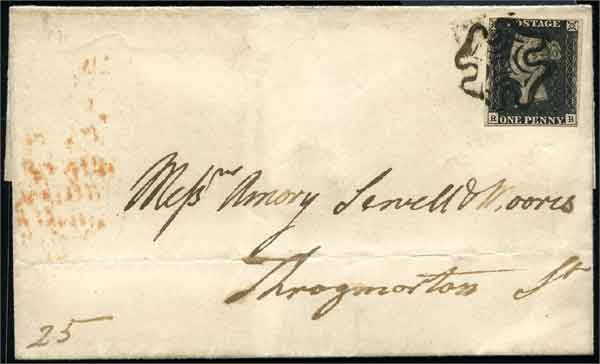 POSTAGE
R B
ONE PENNY
Messrs Amory Sewell & Moores
Throgmorton St
25